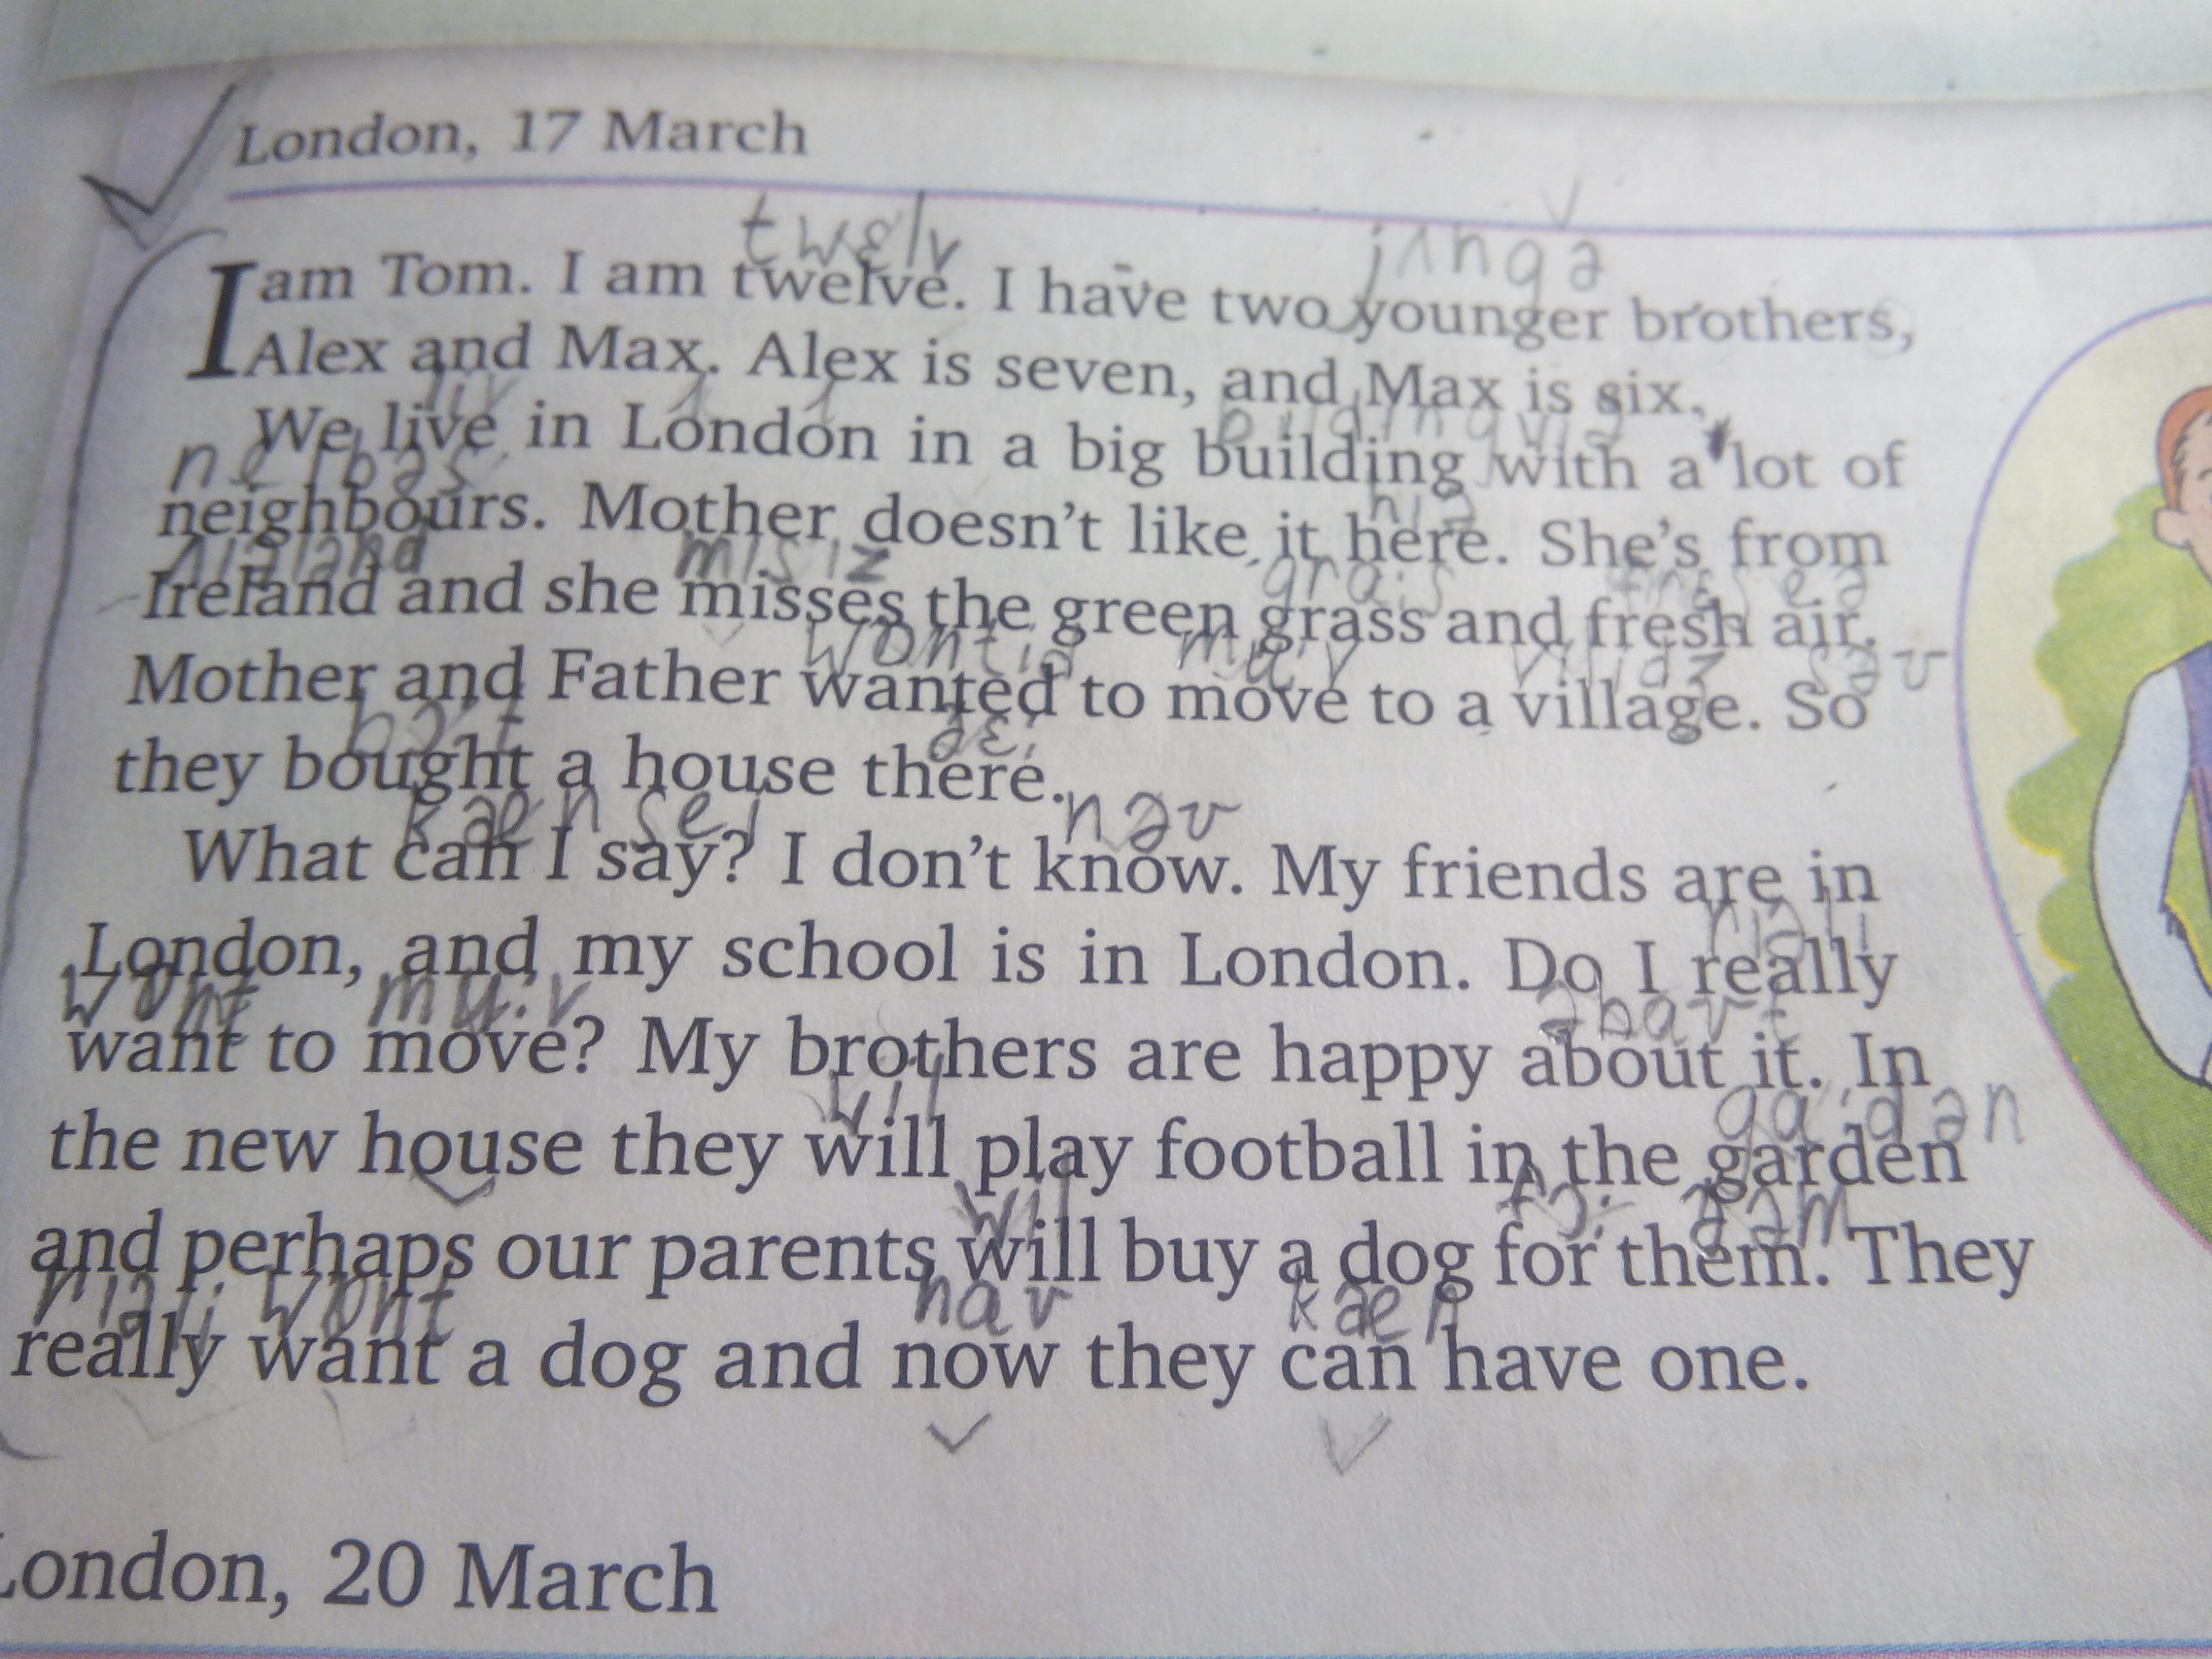 London, 17 March
twelv jʌngə
I am Tom. I am twelve. I have two younger brothers,
Alex and Max. Alex is seven, and Max is six.
liv
We live in London in a big building with a lot of
neibəs
neighbours. Mother doesn't like it here. She's from
misiz
Ireland and she misses the green grass and fresh air.
wontid mu:v
Mother and Father wanted to move to a village. So
bɔ:t
they bought a house there.
kæn sei nəʊ
What can I say? I don't know. My friends are in
riəli
London, and my school is in London. Do I really
wont mu:v əbaʊt
want to move? My brothers are happy about it. In
wil ga:dən
the new house they will play football in the garden
wil fɔ: ðəm
and perhaps our parents will buy a dog for them. They
riəli wont naʊ kæn
really want a dog and now they can have one.
London, 20 March